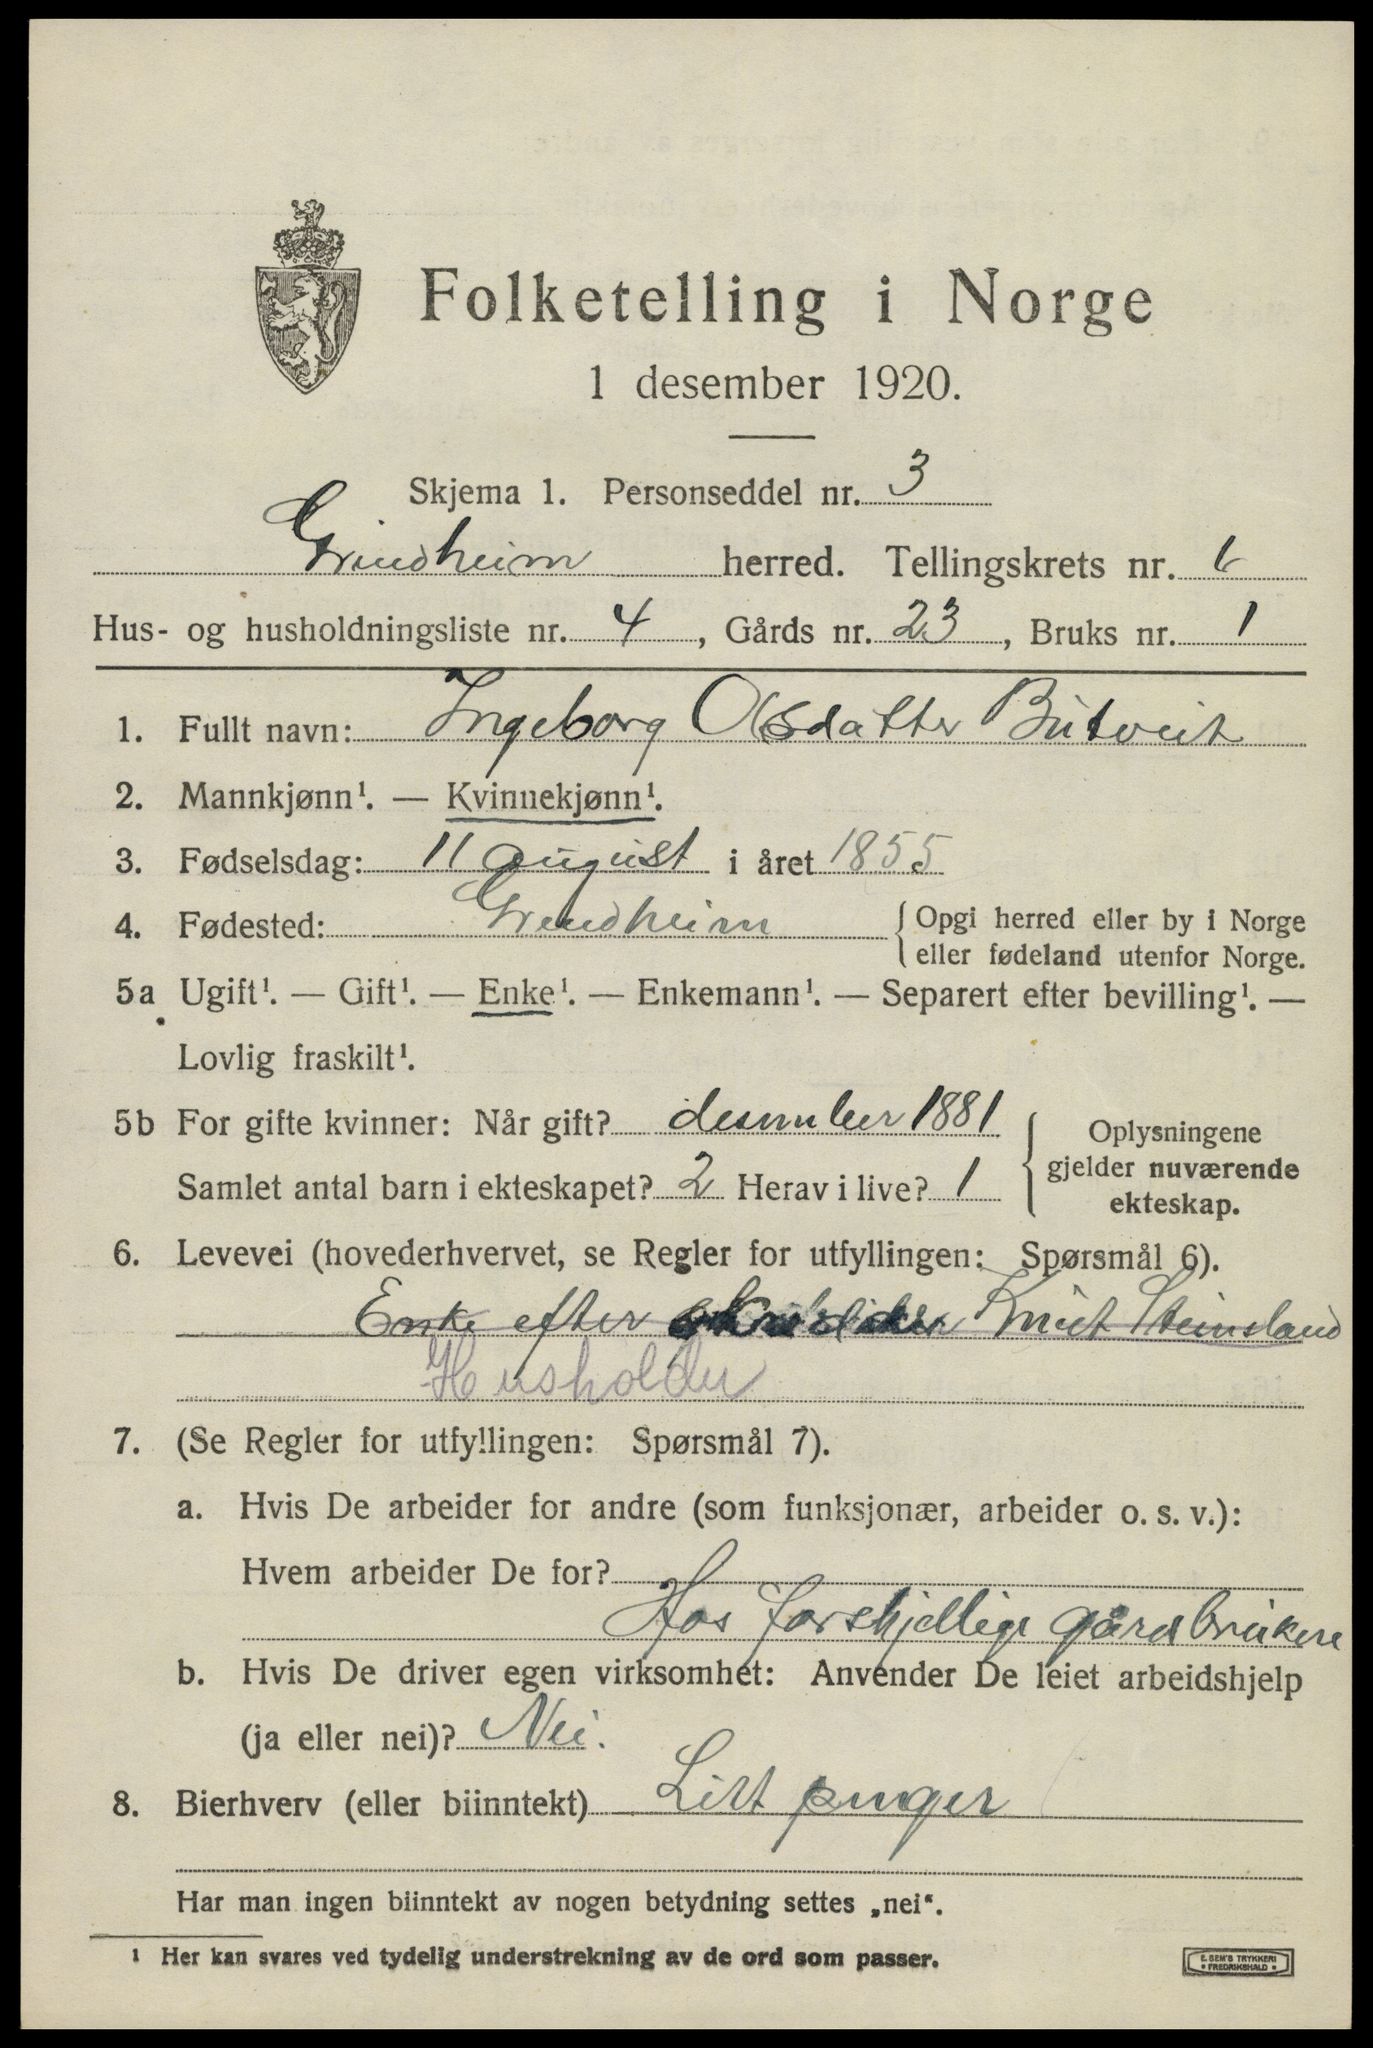 Folketelling i Norge
1 desember 1920.
Skjema 1. Personseddel nr. 3
Grindheim herred. Tellingskrets nr. 6
Hus- og husholdningsliste nr. 4, Gårds nr. 23, Bruks nr. 1
1. Fullt navn: Ingeborg Olsdatter Butveit
2. Mannkjønn¹. — Kvinnekjønn¹.
3. Fødselsdag: 11 august i året 1855
4. Fødested: Grindheim { Opgi herred eller by i Norge
eller fødeland utenfor Norge.
5a Ugift¹. — Gift¹. — Enke¹. — Enkemann¹. — Separert efter bevilling¹. —
Lovlig fraskilt¹.
5b For gifte kvinner: Når gift? desember 1881
Samlet antal barn i ekteskapet? 2 Herav i live? 1
{ Oplysningene
gjelder nuværende
ekteskap.
6. Levevei (hovederhvervet, se Regler for utfyllingen: Spørsmål 6).
Enke efter Knut Steinsland
Husholder
7. (Se Regler for utfyllingen: Spørsmål 7).
a. Hvis De arbeider for andre (som funksjonær, arbeider o. s. v.):
Hvem arbeider De for?
Hos forskjellige gårdbrukere
b. Hvis De driver egen virksomhet: Anvender De leiet arbeidshjelp
(ja eller nei)? Nei.
8. Bierhverv (eller biinntekt) Litt penger
Har man ingen biinntekt av nogen betydning settes „nei“.
¹ Her kan svares ved tydelig understrekning av de ord som passer.
E. SEM'S TRYKKERI
• FREDRIKSHALD •